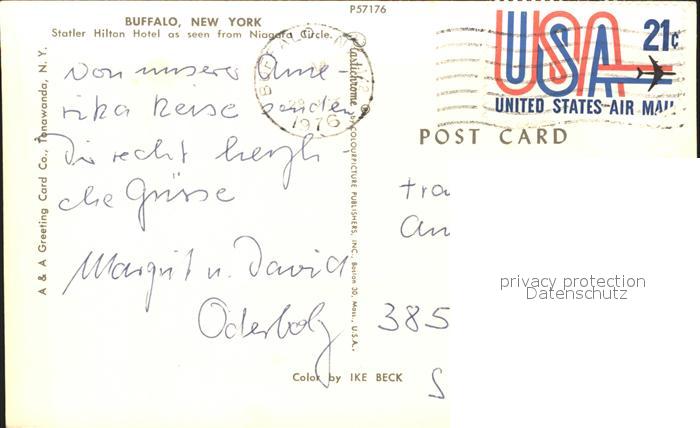 BUFFALO, NEW YORK
Statler Hilton Hotel as seen from Niagara Circle.
P57176
von unserer Ame-
rika Reise senden
Dir recht herzli-
che Grüsse
Margrit u. David
Oderbolz
A & A Greeting Card Co., Tonawanda, N. Y.
Plastichrome ® by COLOURPICTURE PUBLISHERS, INC., Boston 30, Mass., U.S.A.
Color by IKE BECK
1976
USA 21c
UNITED STATES AIR MAIL
POST CARD
Fra
An
385
S
privacy protection
Datenschutz